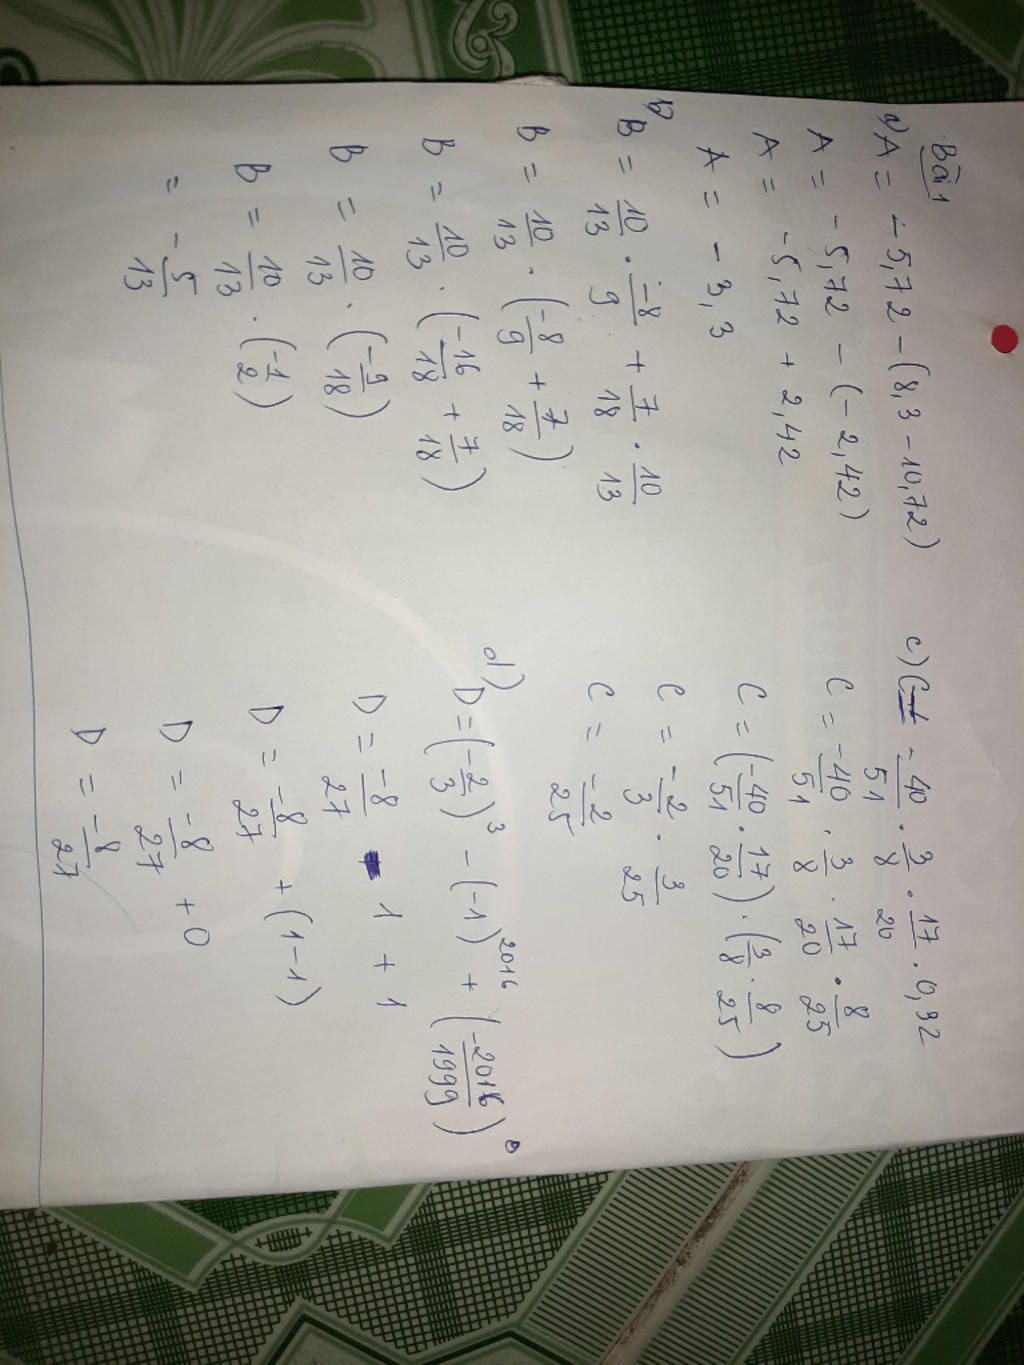 Bài 1
a) A = -5,72 - (8,3 - 10,72)
A = -5,72 - (-2,42)
A = -5,72 + 2,42
A = -3,3
b)
B = 10/13 . -8/9 + 7/18 . 10/13
B = 10/13 . (-8/9 + 7/18)
B = 10/13 . (-16/18 + 7/18)
B = 10/13 . (-9/18)
B = 10/13 . (-1/2)
= -5/13
c) C = -40/51 . 3/8 . 17/20 . 0,32
C = -40/51 . 3/8 . 17/20 . 8/25
C = (-40/51 . 17/20) . (3/8 . 8/25)
C = -2/3 . 3/25
C = -2/25
d)
D = (-2/3)³ - (-1)²⁰¹⁶ + (-2016/1999)⁰
D = -8/27 - 1 + 1
D = -8/27 + (1-1)
D = -8/27 + 0
D = -8/27